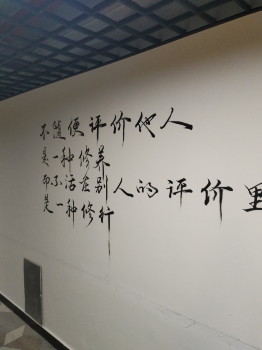 不随便评价他人
是一种修养
而不活在别人的评价里
是一种修行